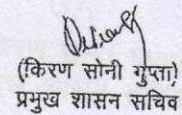 (किरण सोनी गुप्ता)
प्रमुख शासन सचिव